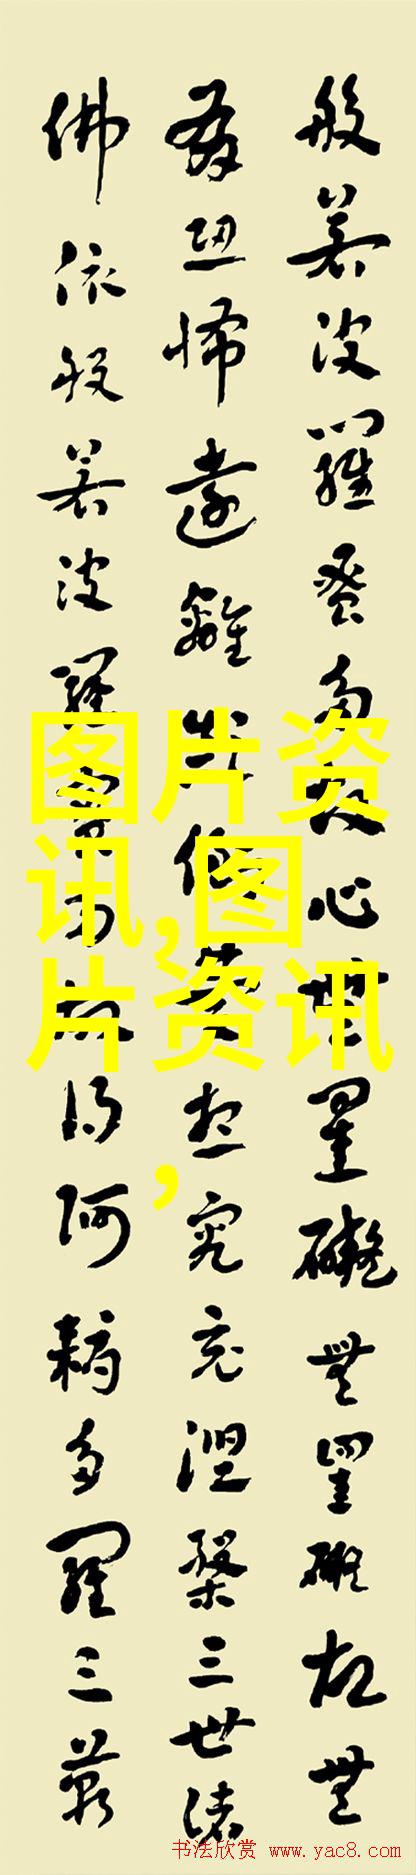 般若波羅蜜多故心無罣礙無罣礙故無
有恐怖遠離顛倒夢想究竟涅槃三世諸
佛依般若波羅蜜多故得阿耨多羅三藐
图片资
讯,图
片资讯
,
书法欣赏 www.yac8.com